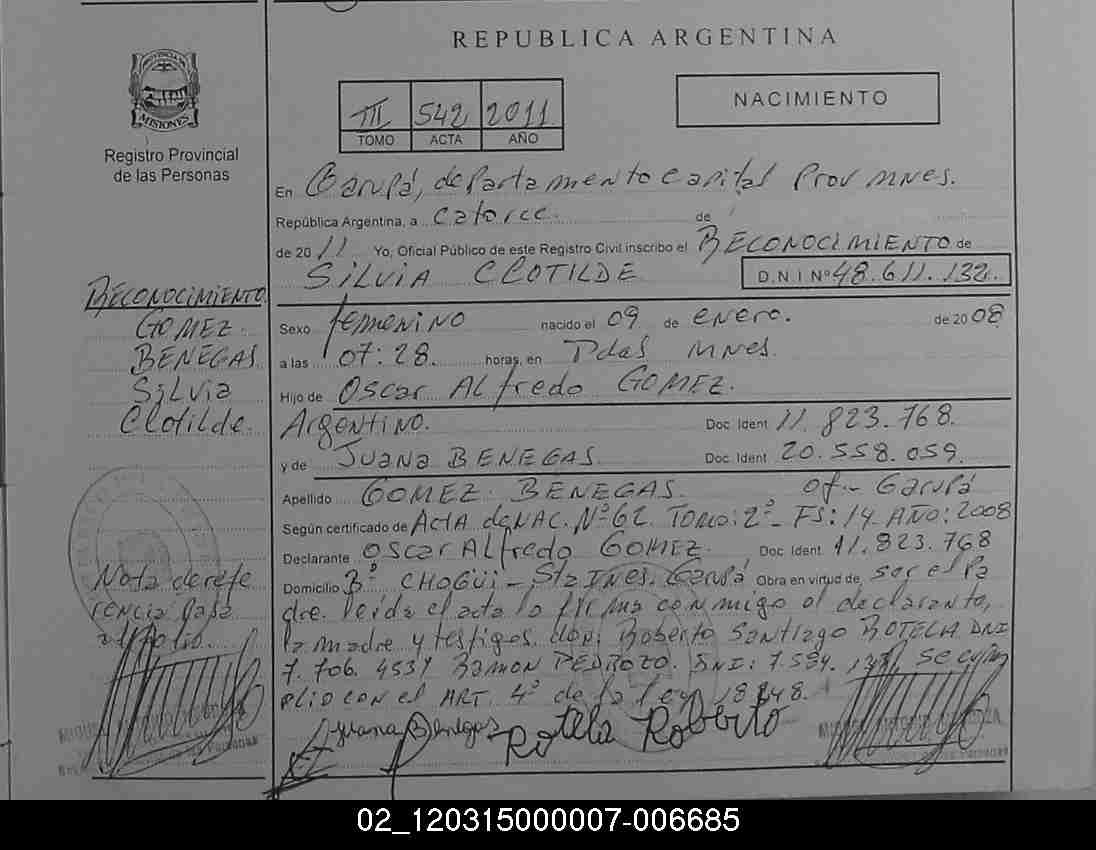 REPUBLICA ARGENTINA
PROVINCIA DE
MISIONES
Registro Provincial
de las Personas
III 542 2011
TOMO ACTA AÑO
NACIMIENTO
En Garupá, departamento capital Prov Mnes.
República Argentina, a catorce de
de 2011 Yo, Oficial Público de este Registro Civil inscribo el RECONOCIMIENTO de
SILVIA CLOTILDE D.N.I Nº 48.611.132
RECONOCIMIENTO
GOMEZ
BENEGAS
Silvia
Clotilde.
Sexo femenino nacido el 09 de enero. de 2008
a las 07:28. horas, en Pdas Mnes.
Hijo de Oscar Alfredo GOMEZ.
Argentino. Doc. Ident 11.823.768.
y de Juana BENEGAS Doc. Ident. 20.558.059.
Apellido GOMEZ BENEGAS. Of- Garupá
Según certificado de Acta de NAC. Nº 62 Tomo: 2º- FS: 14 AÑO: 2008
Declarante Oscar Alfredo GOMEZ. Doc. Ident. 11.823.768
Domicilio Bº CHOGÜI - Sta INES. Garupá Obra en virtud de ser el pa
dre. leída el acta la firma conmigo el declarante,
la madre y testigos don: Roberto Santiago ROTELA DNI
7.706.453 y Ramon PEDROZO. DNI: 7.584. se cum
plio con el ART. 4º de la ley 18248.
Nota de refe
rencia pasa
al folio.
Juana Benegas Rotela Roberto
02_120315000007-006685